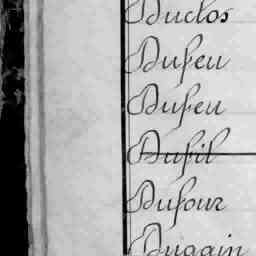 Duclos
Dufeu
Dufeu
Dufil
Dufour
Dugain